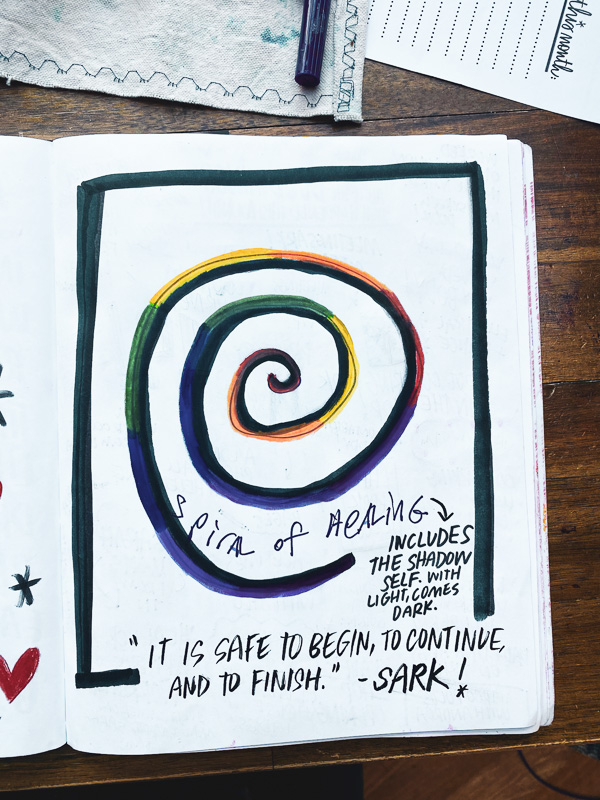 this month:
Spiral of Healing
INCLUDES
THE SHADOW
SELF. WITH
LIGHT, COMES
DARK.
"IT IS SAFE TO BEGIN, TO CONTINUE,
AND TO FINISH." -SARK!